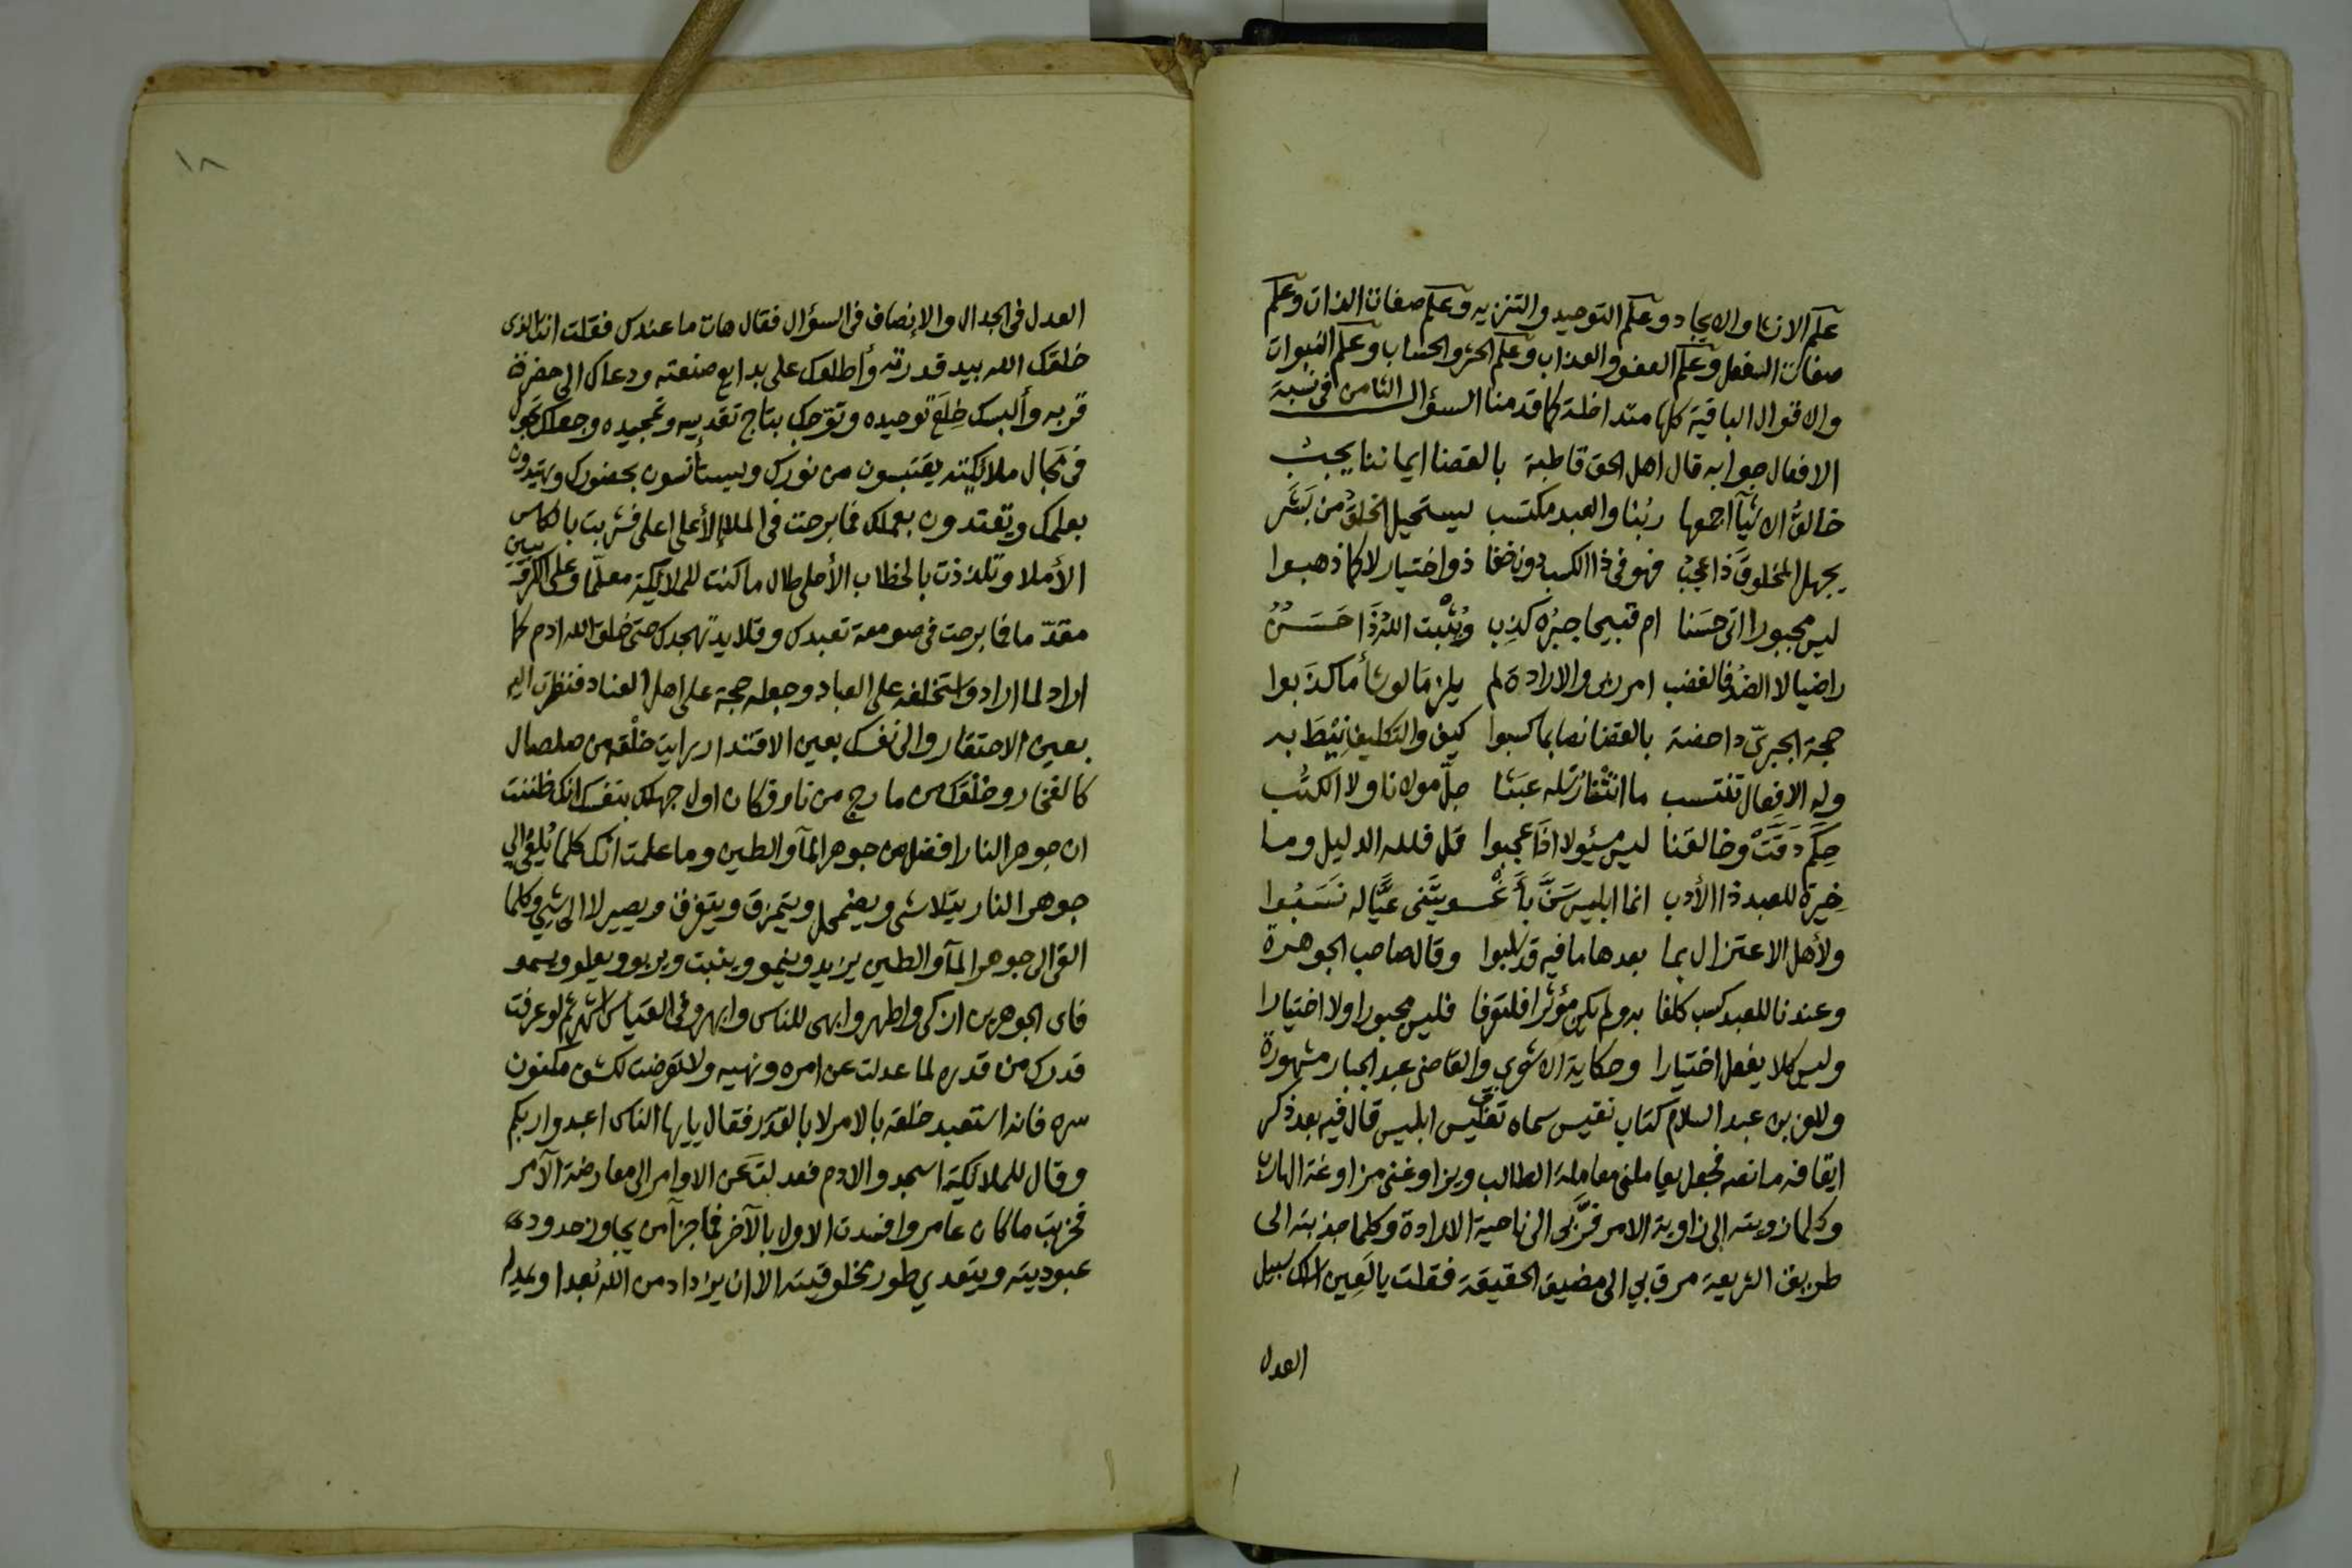 علم الانشا والايجاد وعلم التوحيد والتنزيه وعلم صفات الذات وعلم
صفات الفعل وعلم العفو والعذاب وعلم الحشر والحساب وعلم النبوات
والاقوال الباقية كلها متداخلة كما قدمنا السؤال الثامن فى نسبة
الافعال جوابه قال اهل الحق قاطبة بالقضا ايماننا يجب
خالق الاشيآ اجمعها ربنا والعبد مكتسب ليستحيل الخلق من بشر
يجهل المخلوق ذا عجب فهو فى ذا الكسب دون خفا ذو اختيار لا كما ذهبوا
ليس مجبورا اتى حسنا ام قبيحا جبره كذب ويثبت الله ذا حسن
راضيا لا الضد فالغضب امر ربى والارادة لم يلزما لو شأ ما كذبوا
حجة الجبري داحضة بالقضا نصا بما كسبوا كيف والتكليف نيط به
وله الافعال تنتسب ما رسله عبثا جل مولانا ولا الكتب
حكم دقت وخالقنا ليس مسئولا اذا عجبوا قل فلله الدليل وما
خيرة للعبد ذا الأدب انما ابليس سن بأغـــويتنى غيا له نسبوا
ولأهل الاعتزال بما بعدها ما فيه قد غلبوا وقال صاحب الجوهرة
وعندنا للعبد كسب كلفا به ولم يكن مؤثرا فلتعرفا فليس مجبورا ولا اختيارا
وليس كلا يفعل اختيارا وحكاية الاشعري والقاضى عبد الجبار مشهورة
وللعز بن عبد السلام كتاب نفيس سماه تفليس ابليس قال فيه بعد ذكر
ايقافه ما نصه فجعل يعاملنى معاملة الطالب ويزاوغنى مزاوغة الهارب
وكلما زويته إلى زاوية الامر فر بى الى ناحية الارادة وكلما جذبته الى
طريق الشريعة مرق بي الى مضيق الحقيقة فقلت يا لعين اسلك سبيل
العدل
١٨
العدل فى الجدال والإنصاف فى السؤال فقال هات ما عندك فقلت انت الذى
خلقك الله بيد قدرته وأطلعك على بدايع صنعته ودعاك الى حضرة
قربه وألبسك خلع توحيده وتوجك بتاج تقديسه وتمجيده وجعلك تجول
فى مجال ملائكته يقتبسون من نورك ويستأنسون بحضورك ويهتدون
بعلمك ويقتدون بعملك فما برحت فى الملإ الأعلى فشربت بالكاس
الأملا وتلذذت بالخطاب الأحلى طال ما كنت للملائكة معلما وعلى الكروبيين
مقدّما فما برحت فى صومعة تعبدك وقلايد تهجدك حتى خلق الله ادم كما
اراد لما اراد واستخلفه على العباد وجعله حجة على اهل العناد فنظرت اليه
بعين الاحتقار والى نفسك بعين الاقتدار رايت خلقه من صلصال
كالفخار وخلقك من مارج من نار فكان اول جهلك بنفسك انك ظننت
ان جوهر النار افضل من جوهر المآ والطين وما علمت انك كلما يُلقى الي
جوهر النار يتلاشى ويضمحل ويتمزق ويتفرق ويصير لا الى شي وكلما
القى الى جوهر المآ والطين يزيد وينمو وينبت ويربو ويعلو ويسمو
فاى الجوهرين ازكى واطهر وابهى للناس وابهر وفى القياس اشهر ثم لو عرفت
قدرك من قدره لما عدلت عن امره ونهيه ولا تعرضت لكشف مكنون
سره فانه استعبد خلقه بالامر لا بالقدر فقال يايها الناس اعبدوا ربكم
وقال للملائكة اسجدوا لادم فعدلت عن الاوامر الى معارضة الآمر
فخربت ما كان عامر وافسدت الاول بالآخر فما جزآ من يجاوز حدود
عبوديته ويتعدي طور مخلوقيته الا ان يزداد من الله بعدا ويمد له